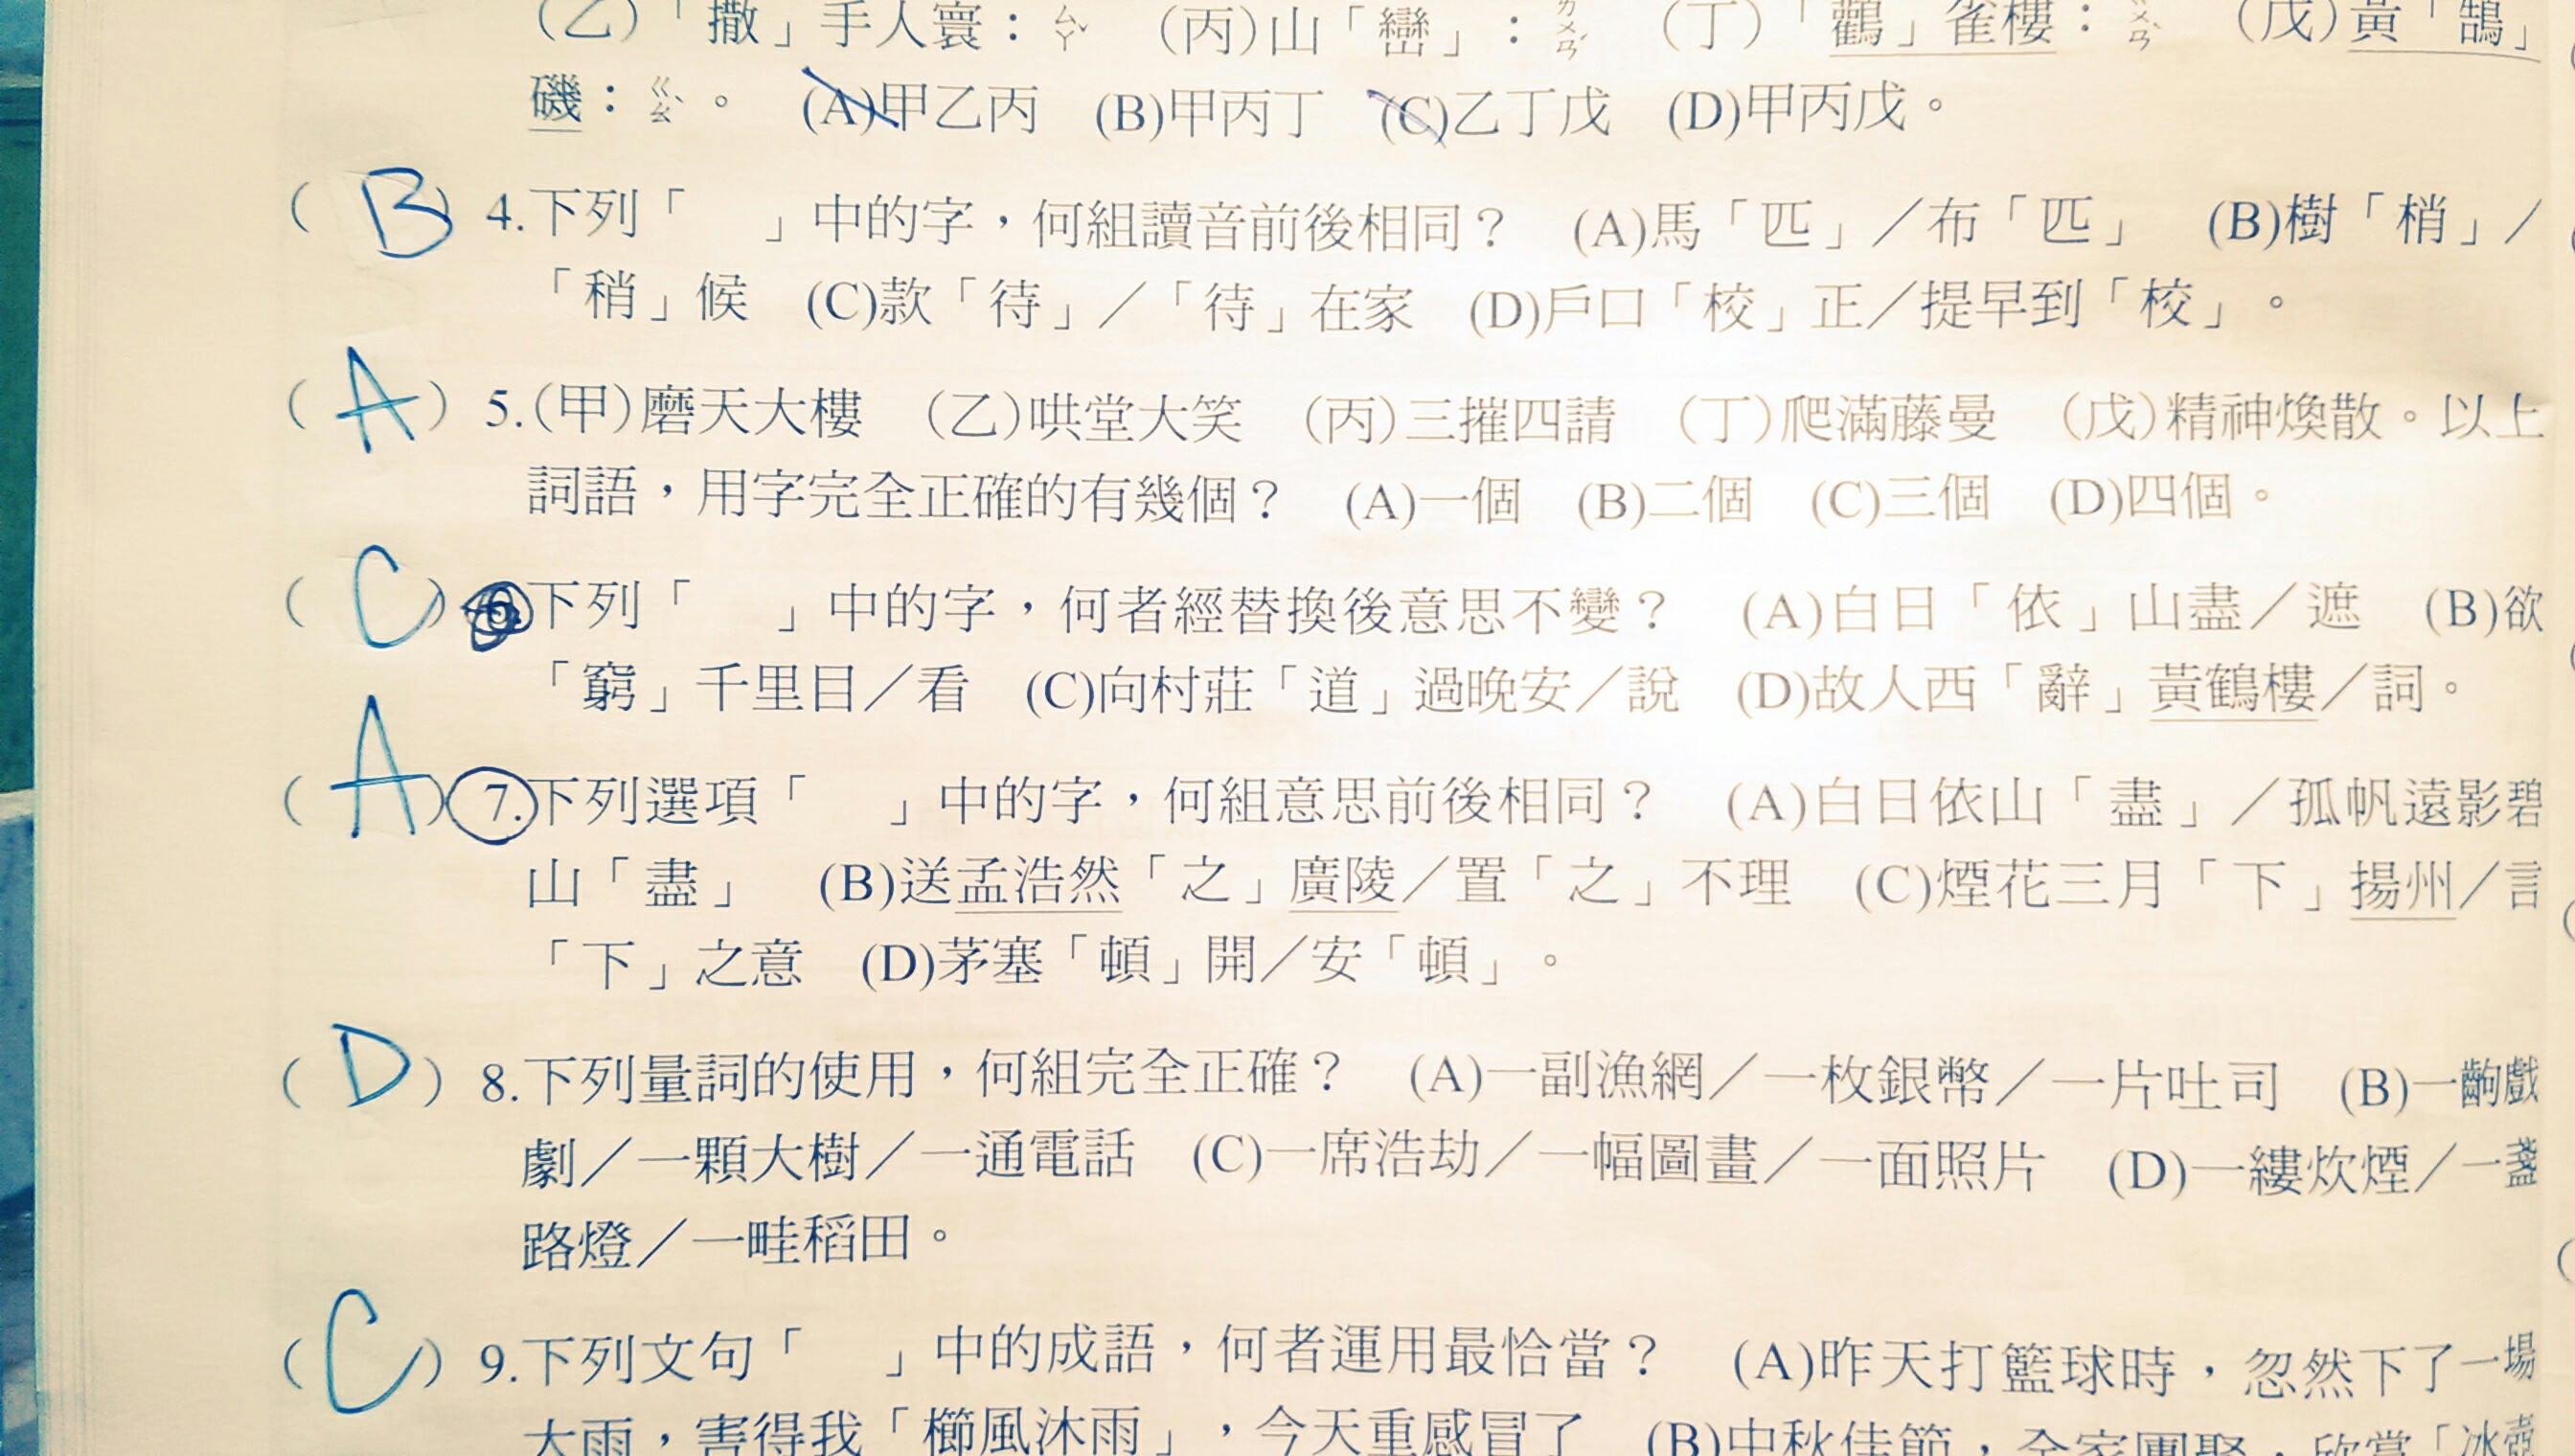 (乙)「撒」手人寰：ㄙㄚˇ (丙)山「巒」：ㄌㄨㄢˊ (丁)「鸛」雀樓： (戊)黃「鵠」
磯：ㄍㄠˋ。 (A)甲乙丙 (B)甲丙丁 (C)乙丁戊 (D)甲丙戊。
( B ) 4.下列「 」中的字，何組讀音前後相同？ (A)馬「匹」／布「匹」 (B)樹「梢」／
「稍」候 (C)款「待」／「待」在家 (D)戶口「校」正／提早到「校」。
( A ) 5.(甲)磨天大樓 (乙)哄堂大笑 (丙)三摧四請 (丁)爬滿藤曼 (戊)精神煥散。以上
詞語，用字完全正確的有幾個？ (A)一個 (B)二個 (C)三個 (D)四個。
( C ) 6.下列「 」中的字，何者經替換後意思不變？ (A)白日「依」山盡／遮 (B)欲
「窮」千里目／看 (C)向村莊「道」過晚安／說 (D)故人西「辭」黃鶴樓／詞。
( A ) 7.下列選項「 」中的字，何組意思前後相同？ (A)白日依山「盡」／孤帆遠影碧
山「盡」 (B)送孟浩然「之」廣陵／置「之」不理 (C)煙花三月「下」揚州／言
「下」之意 (D)茅塞「頓」開／安「頓」。
( D ) 8.下列量詞的使用，何組完全正確？ (A)一副漁網／一枚銀幣／一片吐司 (B)一齣戲
劇／一顆大樹／一通電話 (C)一席浩劫／一幅圖畫／一面照片 (D)一縷炊煙／一盞
路燈／一畦稻田。
( C ) 9.下列文句「 」中的成語，何者運用最恰當？ (A)昨天打籃球時，忽然下了一場
大雨，害得我「櫛風沐雨」，今天重感冒了 (B)中秋佳節，全家團聚，欣賞「冰壺